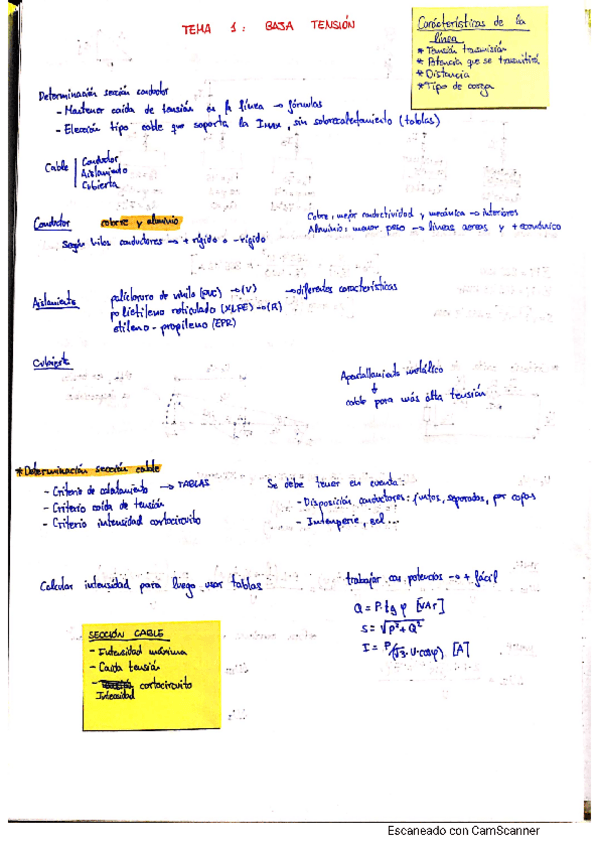 TEMA 1: BAJA TENSIÓN
Características de la
línea
* Tensión transmisión
* Potencia que se transmitirá
* Distancia
* Tipo de carga
Determinación sección conductor
- Mantener caída de tensión en la línea → fórmulas
- Elección tipo cable que soporta la Imax, sin sobrecalentamiento (tablas)
Cable
Conductor
Aislamiento
Cubierta
Conductor cobre y aluminio
Según hilos conductores → + rígido o - rígido
Cobre, mejor conductividad y mecánica → interiores
Aluminio, menor peso → líneas aereas y + económico
Aislamiento
policloruro de vinilo (PVC) → (V) → diferentes características
polietileno reticulado (XLPE) → (R)
etileno - propileno (EPR)
Cubierta
Apantallamiento metálico
↓
cable para más alta tensión
* Determinación sección cable
- Criterio de calentamiento → TABLAS
- Criterio caída de tensión
- Criterio intensidad cortocircuito
Se debe tener en cuenta:
- Disposición conductores: juntos, separados, por capas
- Intemperie, sol...
Calcular intensidad para luego usar tablas
trabajar con potencias → + fácil
Q = P·tg φ [VAr]
S = √P²+Q²
I = P/(√3·U·cosφ) [A]
SECCIÓN CABLE
- Intensidad máxima
- Caída tensión
- cortocircuito
Intensidad
Escaneado con CamScanner